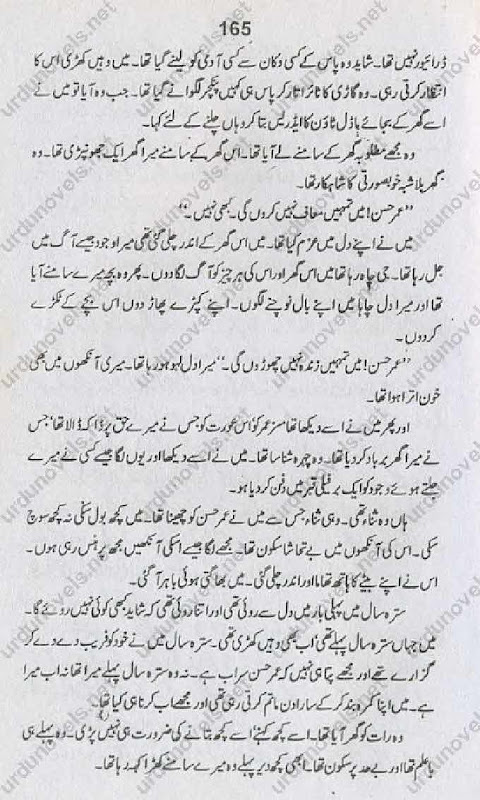 165
ڈرائیور نہیں تھا۔ شاید وہ پاس کے کسی دکان سے کسی آدمی کو لینے گیا تھا۔ میں وہیں کھڑی اس کا
انتظار کرتی رہی۔ وہ گاڑی کا ٹائر اتار کر پاس ہی کہیں پنکچر لگوانے گیا تھا۔ جب وہ آیا تو میں نے
اسے گھر کے بجائے ماڈل ٹاؤن کا ایڈریس بتا کر وہاں چلنے کے لئے کہا۔
وہ مجھے مطلوبہ گھر کے سامنے لے آیا تھا۔ اس گھر کے سامنے میرا گھر ایک جھونپڑی تھا۔ وہ
گھر بلاشبہ خوبصورتی کا شاہکار تھا۔
”عمر حسن! میں تمہیں معاف نہیں کروں گی۔ کبھی نہیں۔“
میں نے اپنے دل میں عزم کیا تھا۔ میں اس گھر کے اندر چلی گئی تھی میرا وجود جیسے آگ میں
جل رہا تھا۔ جی چاہ رہا تھا میں اس گھر اور اس کی ہر چیز کو آگ لگا دوں۔ پھر وہ بچہ میرے سامنے آیا
تھا اور میرا دل چاہا میں اپنے بال نوچنے لگوں۔ اپنے کپڑے پھاڑ دوں اس بچے کے ٹکڑے
کر دوں۔
”عمر حسن! میں تمہیں زندہ نہیں چھوڑوں گی۔“ میرا دل لہو ہو رہا تھا۔ میری آنکھوں میں بھی
خون اترا ہوا تھا۔
اور پھر میں نے اسے دیکھا تھا مسز عمر کو اس عورت کو جس نے میرے حق پر ڈاکہ ڈالا تھا‘ جس
نے میرا گھر برباد کر دیا تھا۔ وہ چہرہ شناسا تھا۔ میں نے اسے دیکھا اور یوں لگا جیسے کسی نے میرے
جلتے ہوئے وجود کو ایک برفیلی قبر میں دفن کر دیا ہو۔
ہاں وہ ثناء تھی۔ وہی ثناء جس سے میں نے عمر حسن کو چھینا تھا۔ میں کچھ بول سکی نہ کچھ سوچ
سکی۔ اس کی آنکھوں میں بے تحاشا سکون تھا۔ مجھے لگا جیسے اسکی آنکھیں مجھ پر ہنس رہی ہوں۔
اس نے اپنے بیٹے کا ہاتھ تھاما اور اندر چلی گئی۔ میں بھاگتی ہوئی باہر آ گئی۔
سترہ سال میں پہلی بار میں دل سے روئی تھی اور اتنا روئی تھی کہ شاید کبھی کوئی نہیں روئے گا۔
میں جہاں سترہ سال پہلے تھی‘ اب بھی وہیں کھڑی تھی۔ سترہ سال میں نے خود کو فریب دے دے کر
گزارے تھے اور مجھے پتا ہی نہیں کہ عمر حسن سراب ہے۔ نہ وہ سترہ سال پہلے میرا تھا نہ اب میرا
ہے۔ میں اپنا کمرہ بند کر کے سارا دن ماتم کرتی رہی تھی اور مجھے اب کرنا ہی کیا تھا۔
وہ رات کو گھر آیا تھا۔ اسے کچھ کہنے‘ اسے کچھ بتانے کی ضرورت ہی نہیں پڑی۔ وہ پہلے ہی
باعلم تھا اور بے حد پر سکون تھا۔ ابھی کچھ دیر پہلے وہ میرے سامنے کھڑا کہہ رہا تھا۔
urdunovels.net